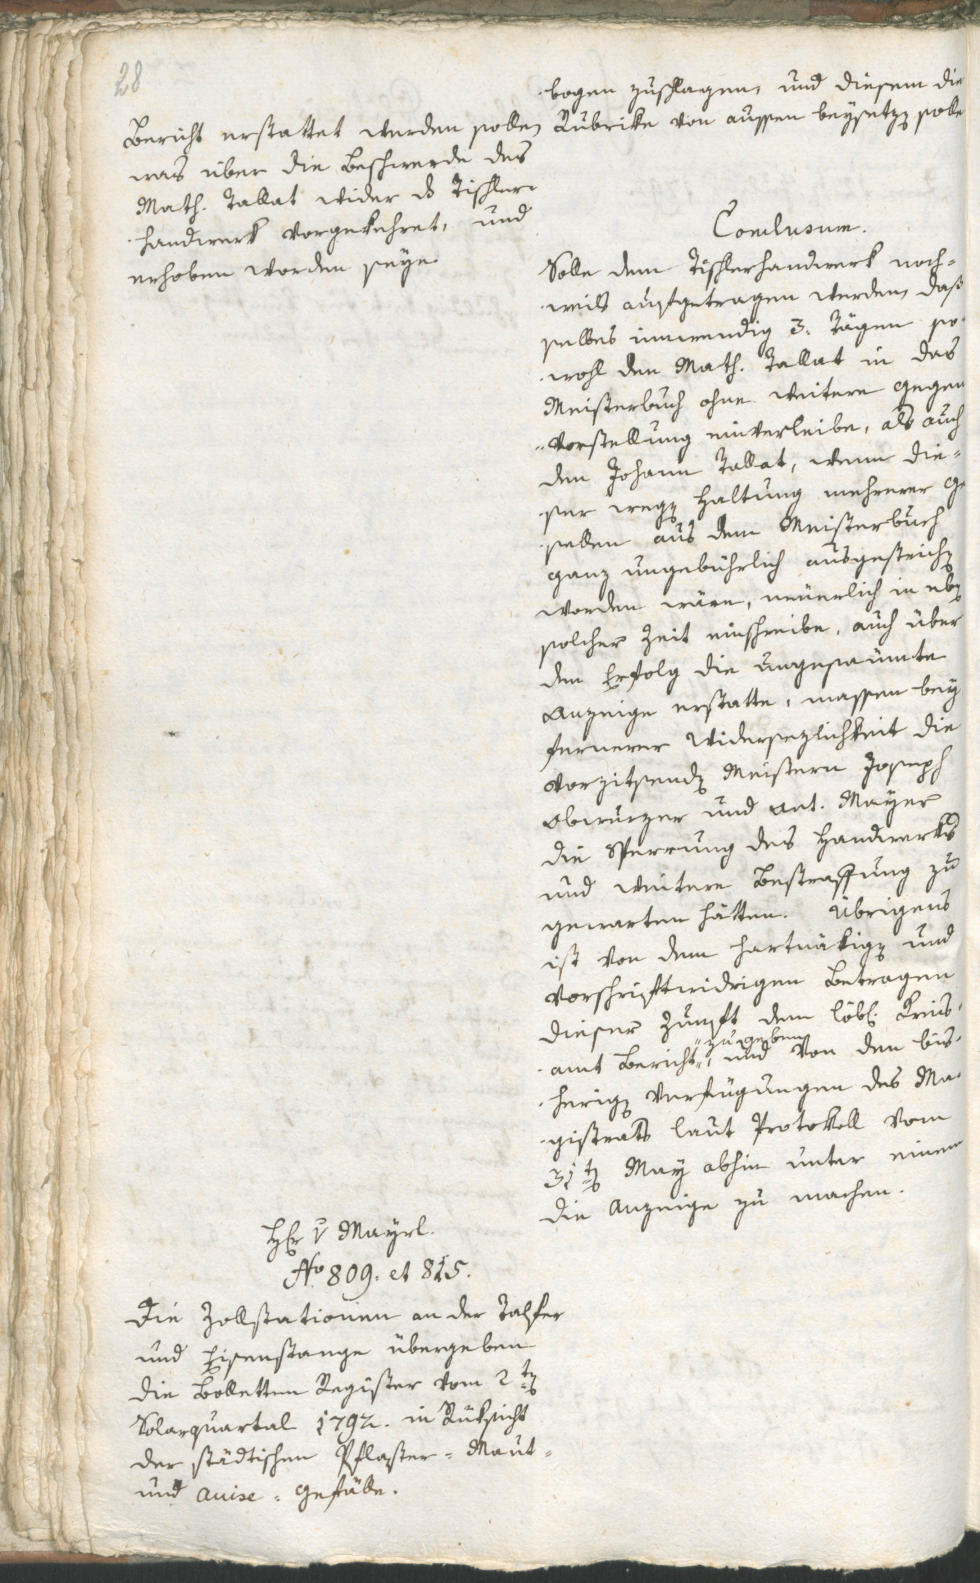 28
Bericht erstattet werden solle,
was über die Beschwerde des
Math. Tallat wider ds Tischler¬
handwerk vorgekehret, und
erhoben worden seye.
bogen zuschlagen, und diesem die
Rubrike von aussen beysetzen solle
Conclusum.
Solle dem Tischlerhandwerk noch=
mals aufgetragen werden, daß
selbes innwendig 3. Tägen so
wohl den Math. Tallat in das
Meisterbuch ohne weitere Gegen
vorstellung einverleibe, als auch
den Johann Tallat, wenn die=
ser wegen Haltung mehrerer Ge
sellen aus dem Meisterbuch
ganz ungebührlich ausgestrichen
worden wäre, neuerlich in eben
solcher Zeit einschreibe, auch über
den Erfolg die ungesaumte
Anzeige erstatte, massen bey
fernerer Widersezlichkeit die
vorzitsenden Meistern Joseph
Obwurzer und Ant. Mayer
die Sperrung des Handwerks
und weitere Bestraffung zu
gewarten hätten. Übrigens
ist von dem hartnäkigen und
vorschriftwidrigen Betragen
dieser Zunft dem löbl. Kreis¬
amt Bericht zugeben, und von den bis¬
herigen Verfügungen des Ma¬
gistrats laut Protokoll vom
31ten May abhin unter einem
die Anzeige zu machen.
Hr v Mayrl.
No 809. et 815.
Die Zollstationen an der Talfer
und Eisenstange übergeben
die Bolletten Register vom 2ten
Solarquartal 1792. in Rüksicht
der städtischen Pflaster=Maut=
und Avise=Gefälle.